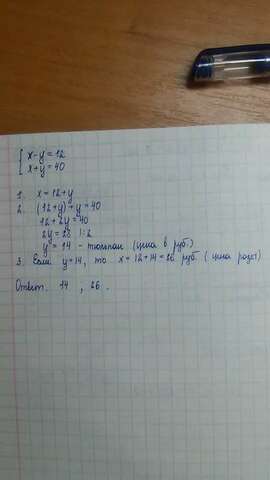 { x-y=12
x+y=40
1. x=12+y
2. (12+y)+y=40
12+2y=40
2y=28 |:2
y=14 - тюльпан (цена в руб.)
3. Если y=14, то x=12+14=26 руб. (цена розы)
Ответ. 14, 26.